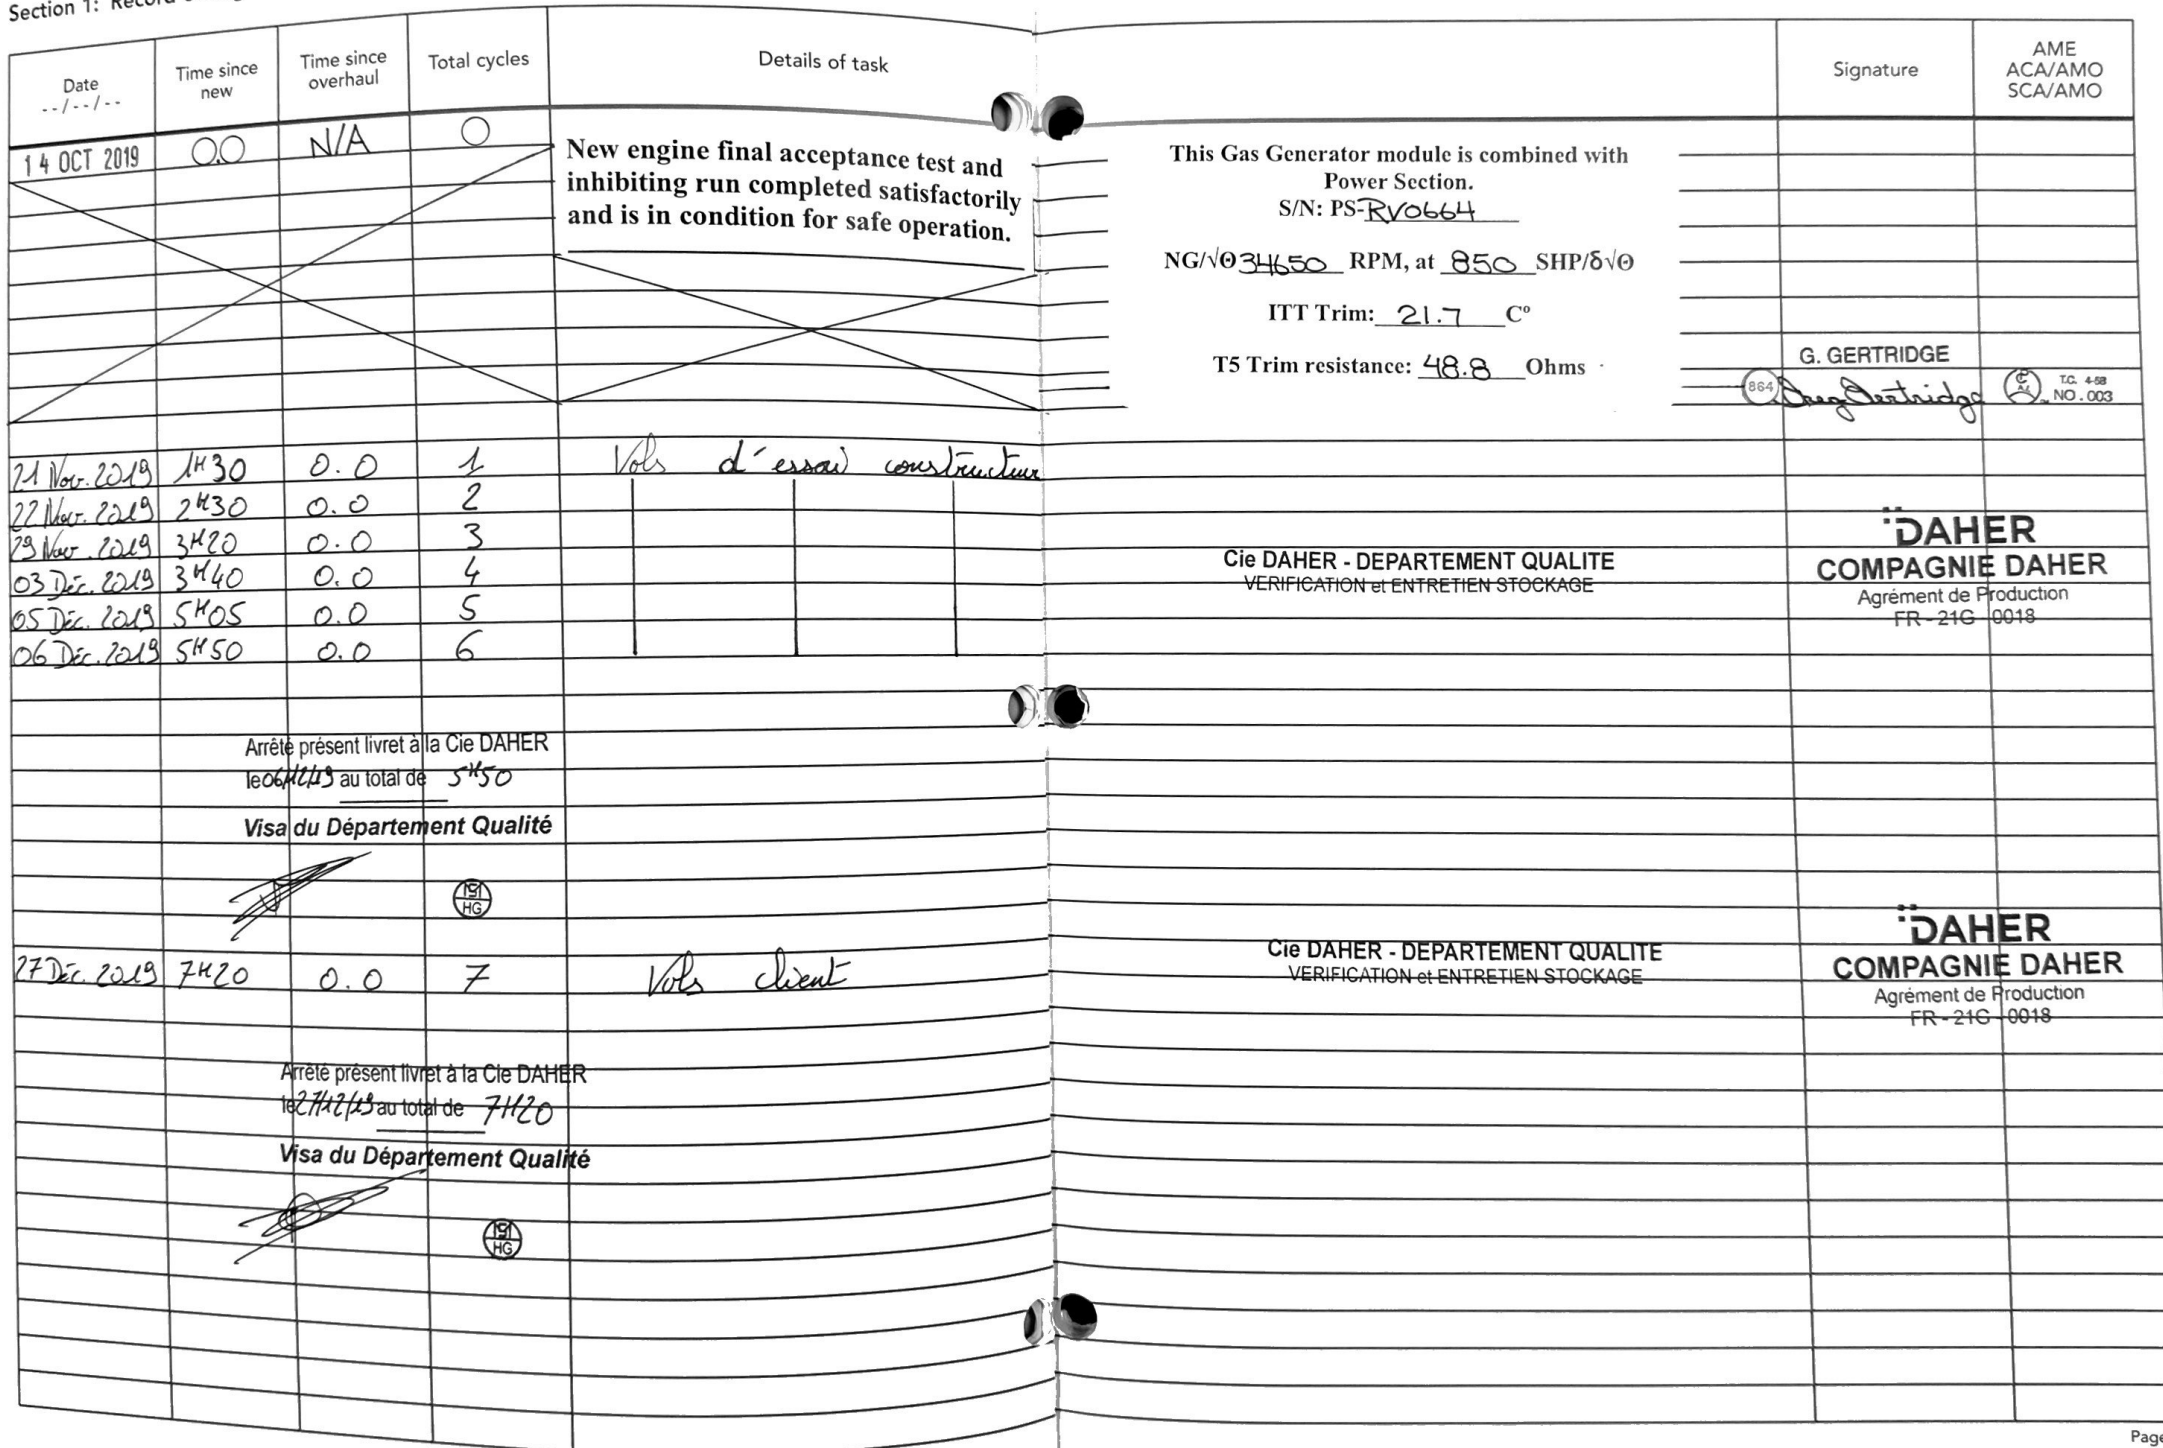 Section 1:
Date
--/--/--
Time since
new
Time since
overhaul
Total cycles
Details of task
Signature
AME
ACA/AMO
SCA/AMO
14 OCT 2019 0.0 N/A 0
New engine final acceptance test and
inhibiting run completed satisfactorily
and is in condition for safe operation.
This Gas Generator module is combined with
Power Section.
S/N: PS-RV0664
NG/√Θ 34650 RPM, at 850 SHP/δ√Θ
ITT Trim: 21.7 C°
T5 Trim resistance: 48.8 Ohms
G. GERTRIDGE
864 Greg Gertridge
T.C. 4-58
NO. 003
21 Nov. 2019 1H30 0.0 1 Vols d'essai constructeur
22 Nov. 2019 2H30 0.0 2
29 Nov. 2019 3H20 0.0 3
03 Déc. 2019 3H40 0.0 4
05 Déc. 2019 5H05 0.0 5
06 Déc. 2019 5H50 0.0 6
Cie DAHER - DEPARTEMENT QUALITE
VERIFICATION et ENTRETIEN STOCKAGE
DAHER
COMPAGNIE DAHER
Agrément de Production
FR - 21G - 0018
Arrêté présent livret à la Cie DAHER
le 06/12/19 au total de 5H50
Visa du Département Qualité
HG
27 Déc. 2019 7H20 0.0 7 Vols client
Cie DAHER - DEPARTEMENT QUALITE
VERIFICATION et ENTRETIEN STOCKAGE
DAHER
COMPAGNIE DAHER
Agrément de Production
FR - 21G - 0018
Arrêté présent livret à la Cie DAHER
le 27/12/19 au total de 7H20
Visa du Département Qualité
HG
Page